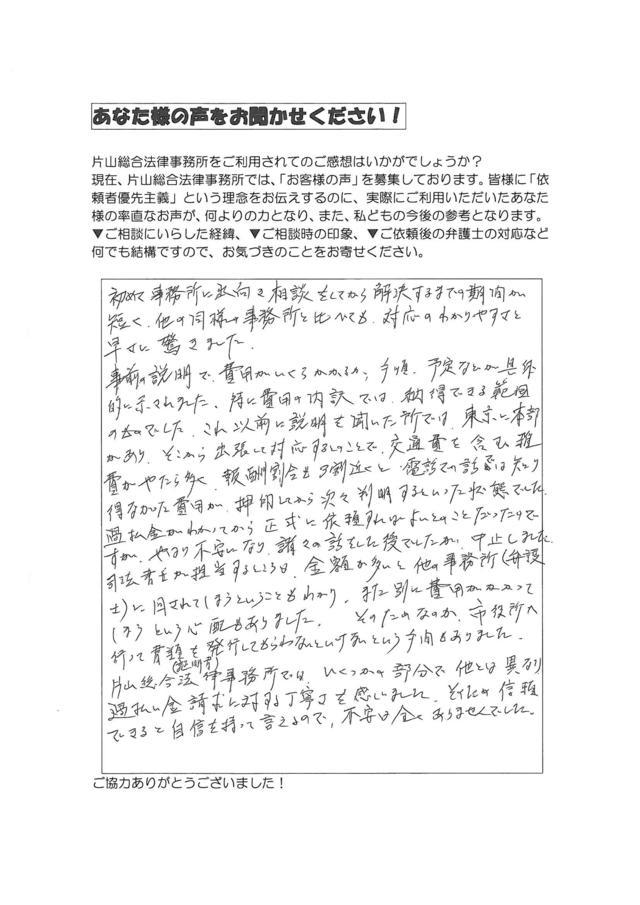 あなた様の声をお聞かせください！
片山総合法律事務所をご利用されてのご感想はいかがでしょうか？
現在、片山総合法律事務所では、「お客様の声」を募集しております。皆様に「依
頼者優先主義」という理念をお伝えするのに、実際にご利用いただいたあなた
様の率直なお声が、何よりの力となり、また、私どもの今後の参考となります。
▼ご相談にいらした経緯、▼ご相談時の印象、▼ご依頼後の弁護士の対応など
何でも結構ですので、お気づきのことをお寄せください。
初めて事務所に出向き相談をしてから解決するまでの期間が
短く、他の同様の事務所と比べても、対応のわかりやすさと
早さに驚きました。
事前の説明で、費用がいくらかかるか、手順、予定などが具体
的に示されました。特に費用の内訳では、納得できる範囲
のものでした。これ以前に説明を聞いた所では、東京に本部
があり、そこから出張して対応するとのことで、交通費を含む雑
費がやたら多く、報酬割合も3割近くと、電話での話では知り
得なかった費用が、押印してから次々判明するといった状態でした。
過払金がわかってから正式に依頼すればよいとのことだったので
すが、やはり不安になり、諸々の話をした後でしたが、中止しました。
司法書士が担当するところは、金額が多いと他の事務所（弁護
士）に回されてしまうということもわかり、また別に費用がかかって
しまうという心配もありました。そのためなのか、市役所へ
行って書類（証明書）を発行してもらわないといけないという手間もありました。
片山総合法律事務所では、いくつかの部分で他とは異なり
過払い金請求に対する丁寧さを感じました。それだけ信頼
できると自信を持って言えるので、不安は全くありませんでした。
ご協力ありがとうございました！